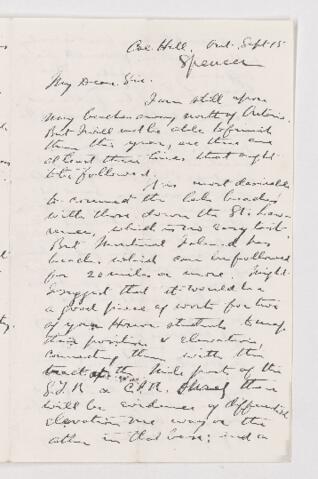 Coe Hill, Ont. Sept 15
Spencer
My Dear Sir.
I am still upon
my beaches away north of Ontario.
But I will not be able to finish
them this year, as there are
at least three lines that ought
to be followed.
It is most desirable
to connect the lake beaches
with those down the St. Law-
rence, which is no easy task.
But Montreal Island has
beach which can be followed
for 20 miles or more. I might
suggest that it would be a
a good piece of work for two
of your Honour students to map
their position & elevation,
connecting them with the
the mile posts of the
G.T.R. & C.P.R. there
will be evidences of differential
elevation one way or the
other in that base; and a